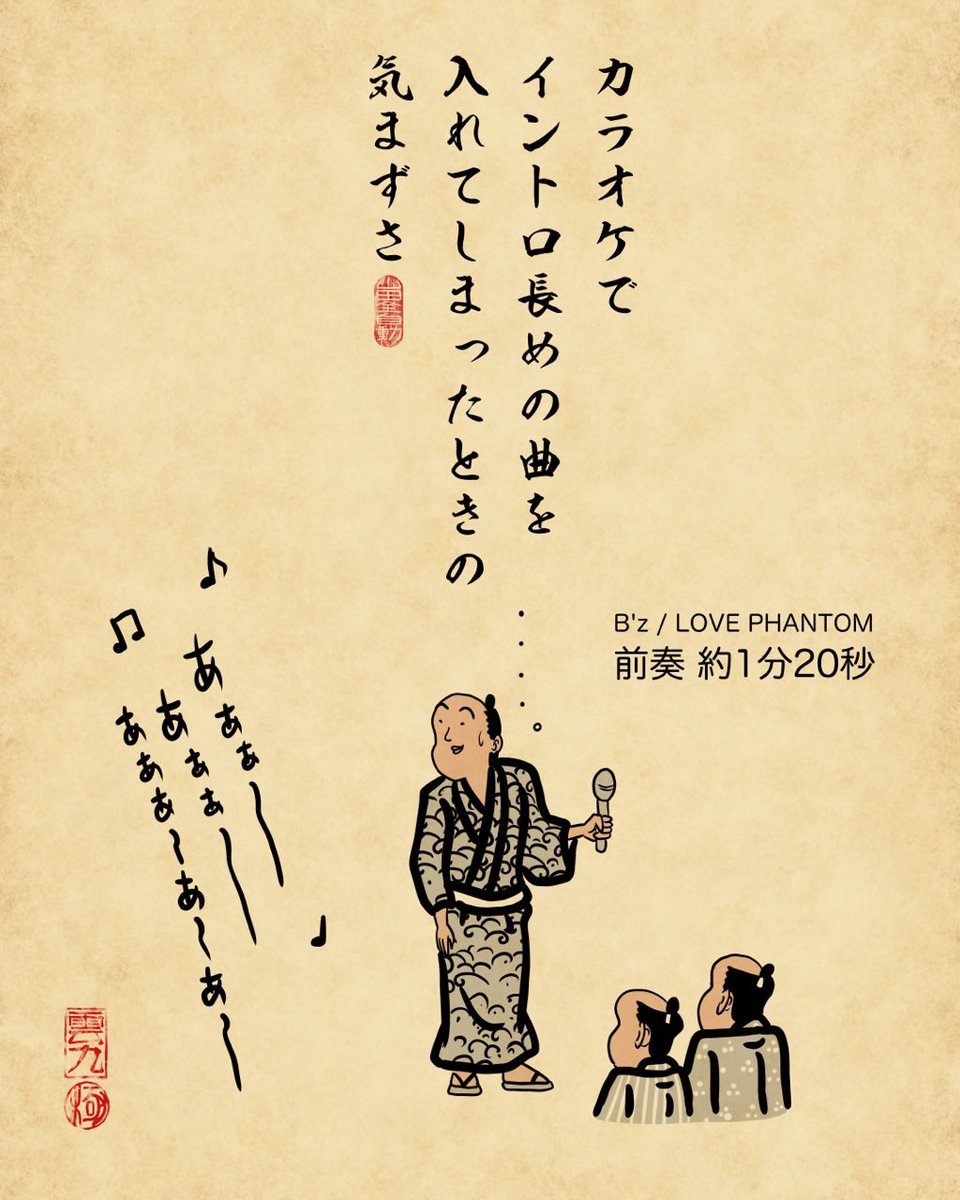 カラオケで
イントロ長めの曲を
入れてしまったときの
気まずさ
B'z / LOVE PHANTOM
前奏 約1分20秒
あぁぁ〜
あぁぁ〜
あぁぁ〜あ〜あ〜
雲九